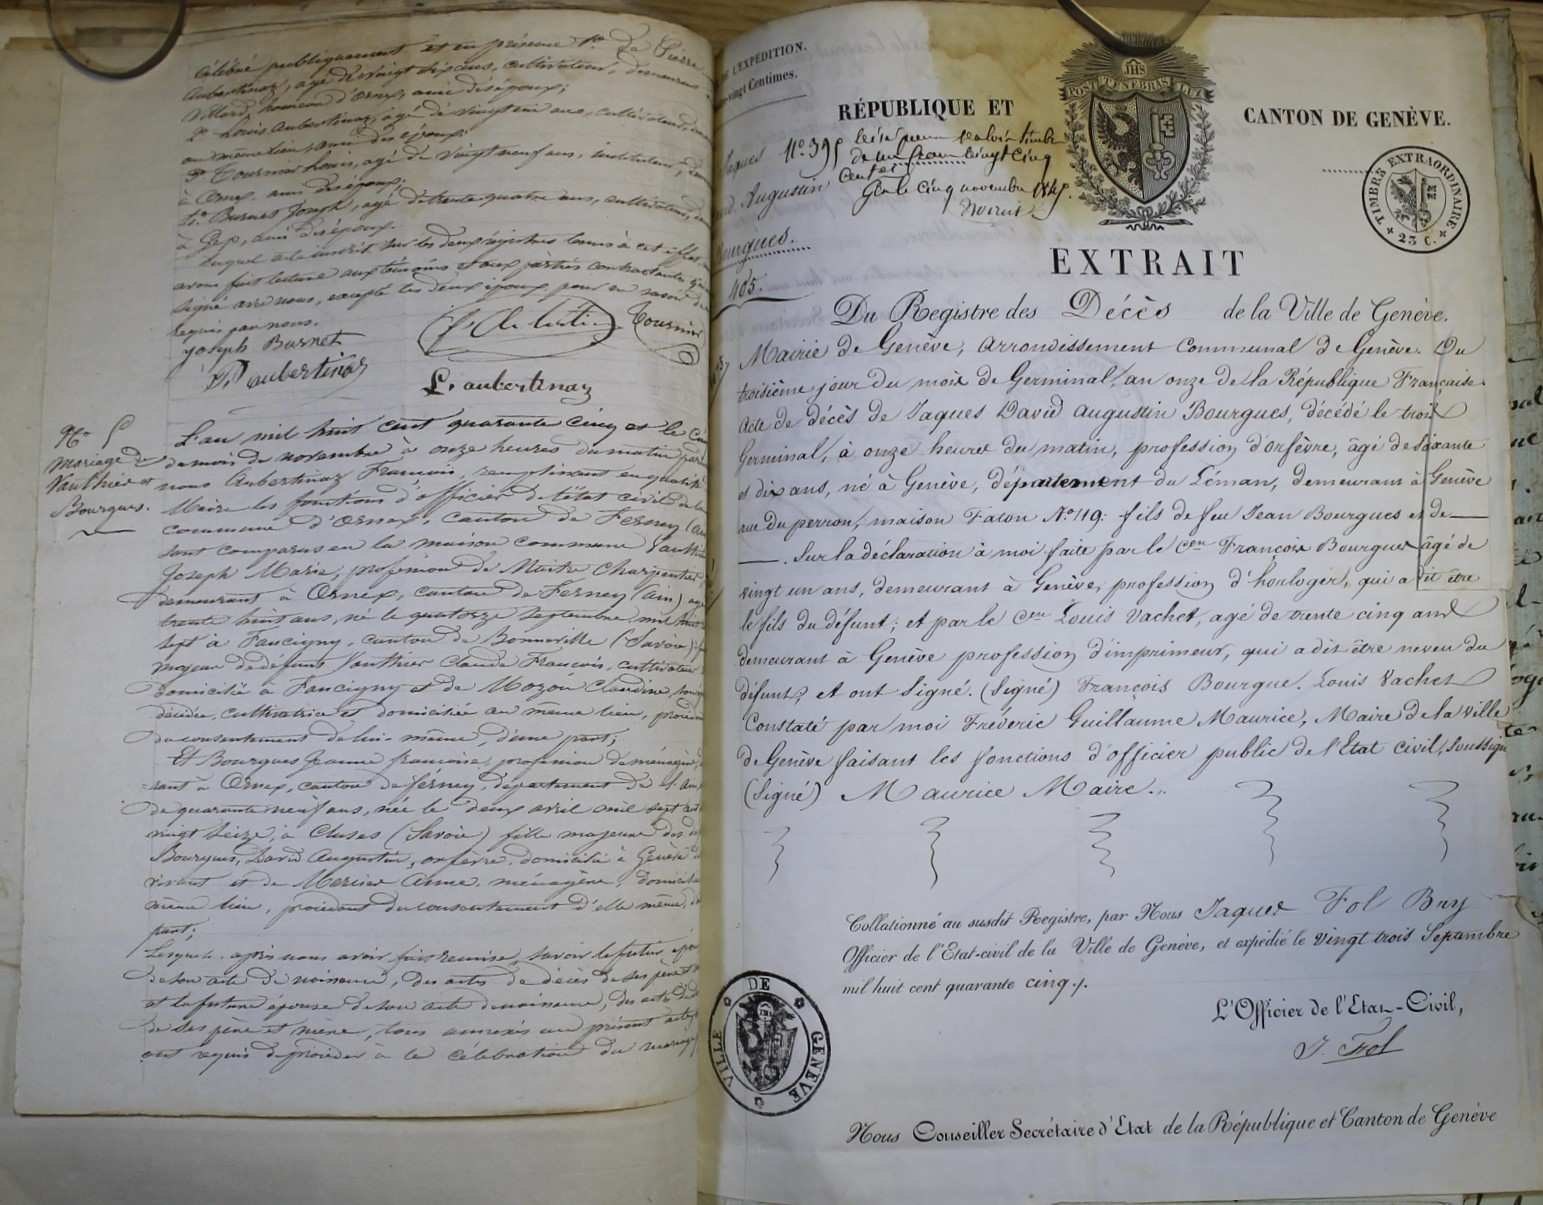 célébré publiquement et en présence 1° de Pierre
Aubertinaz, agé de vingt six ans, cultivateur, demeurant
2° Louis Aubertinaz, agé de vingt un ans, cultivateur,
au même lieu, ami des époux;
3° Tournier Louis, agé de vingt neuf ans, instituteur,
à Ornex, ami des époux;
4° Burnet Joseph, agé de trente quatre ans, cultivateur,
à Gex, ami des époux.
lequel a été inscrit sur les deux registres tenus à cet effet,
avons fait lecture aux témoins et aux parties contractantes
signé avec nous, excepté les deux époux pour ne savoir de
requis par nous.
Joseph Burnet
Tournier
aubertinaz
L. aubertinaz
N° 5
Mariage de
Vauthier et
Bourgues.
L'an mil huit cent quarante cinq et le
du mois de novembre à onze heures du matin par
nous Aubertinaz François, remplissant en qualité
Maire les fonctions d'officier de l'état civil de la
commune d'Ornex, canton de Ferney (Ain
sont comparus en la maison commune Vauthier
Joseph Marie, profession de Maitre Charpentier
demeurant à Ornex, canton de Ferney (Ain) agé
trente huit ans, né le quatorze septembre mil huit
sept à Faucigny, canton de Bonneville (Savoie)
majeur de défunt Vauthier Claude François, cultivateur
domicilié à Faucigny et de Mozon Claudine,
décédée, cultivatrice et domiciliée au même lieu,
du consentement de lui même, d'une part;
Et Bourgues Jeanne françoise, profession de ménagère,
rant à Ornex, canton de ferney, département de l'Ain,
de quarante neuf ans, née le deux avril mil sept cent
vingt seize, à Cluses (Savoie) fille majeure des
Bourgues, David Augustin, orfèvre, domicilié à Genève
vivant et de Mercier Anne, ménagère, domiciliée
même lieu, procédant du consentement d'elle même,
part;
Lesquels après nous avoir fait remise, savoir le futur époux
de son acte de naissance, des actes de décès de ses père et
et la future épouse de son acte de naissance, des actes de
de ses père et mère, tous annexés au présent acte,
ont requis de procéder à la célébration du mariage
L'EXPÉDITION.
vingt Centimes.
Jaques
Augustin
Bourgues.
405.
RÉPUBLIQUE ET
CANTON DE GENÈVE.
JHS
POST TENEBRAS LUX
N° 395
de un franc vingt cinq
Gex le cinq novembre 1845.
TIMBRE EXTRAORDINAIRE
25 C.
EXTRAIT
Du Registre des Décès de la Ville de Genève.
Mairie de Genève, Arrondissement Communal de Genève. Du
troisième jour du mois de Germinal, an onze de la République Française.
Acte de décès de Jaques David Augustin Bourgues, décédé le trois
Germinal, à onze heures du matin, profession d'orfèvre, âgé de soixante
et dix ans, né à Genève, département du Léman, demeurant à Genève
rue du perron, maison Faton N° 119. fils de feu Jean Bourgues et de —
—. Sur la déclaration à moi faite par le Cen François Bourgues âgé de
vingt un ans, demeurant à Genève, profession d'horloger, qui a dit être
le fils du défunt; et par le Cen Louis Vachet, agé de trente cinq ans
demeurant à Genève profession d'imprimeur, qui a dit être neveu du
défunt; et ont signé. (Signé) François Bourgue. Louis Vachet
Constaté par moi Fréderic Guillaume Maurice, Maire de la ville
de Genève faisant les fonctions d'officier public de l'Etat civil, soussigné
(Signé) Maurice Maire.
Collationné au susdit Registre, par Nous Jaques Fol Bry
Officier de l'Etat-civil de la Ville de Genève, et expédié le vingt trois Septembre
mil huit cent quarante cinq.
L'Officier de l'Etat-Civil,
J. Fol
VILLE DE GENÈVE
Nous Conseiller Secrétaire d'Etat de la République et Canton de Genève